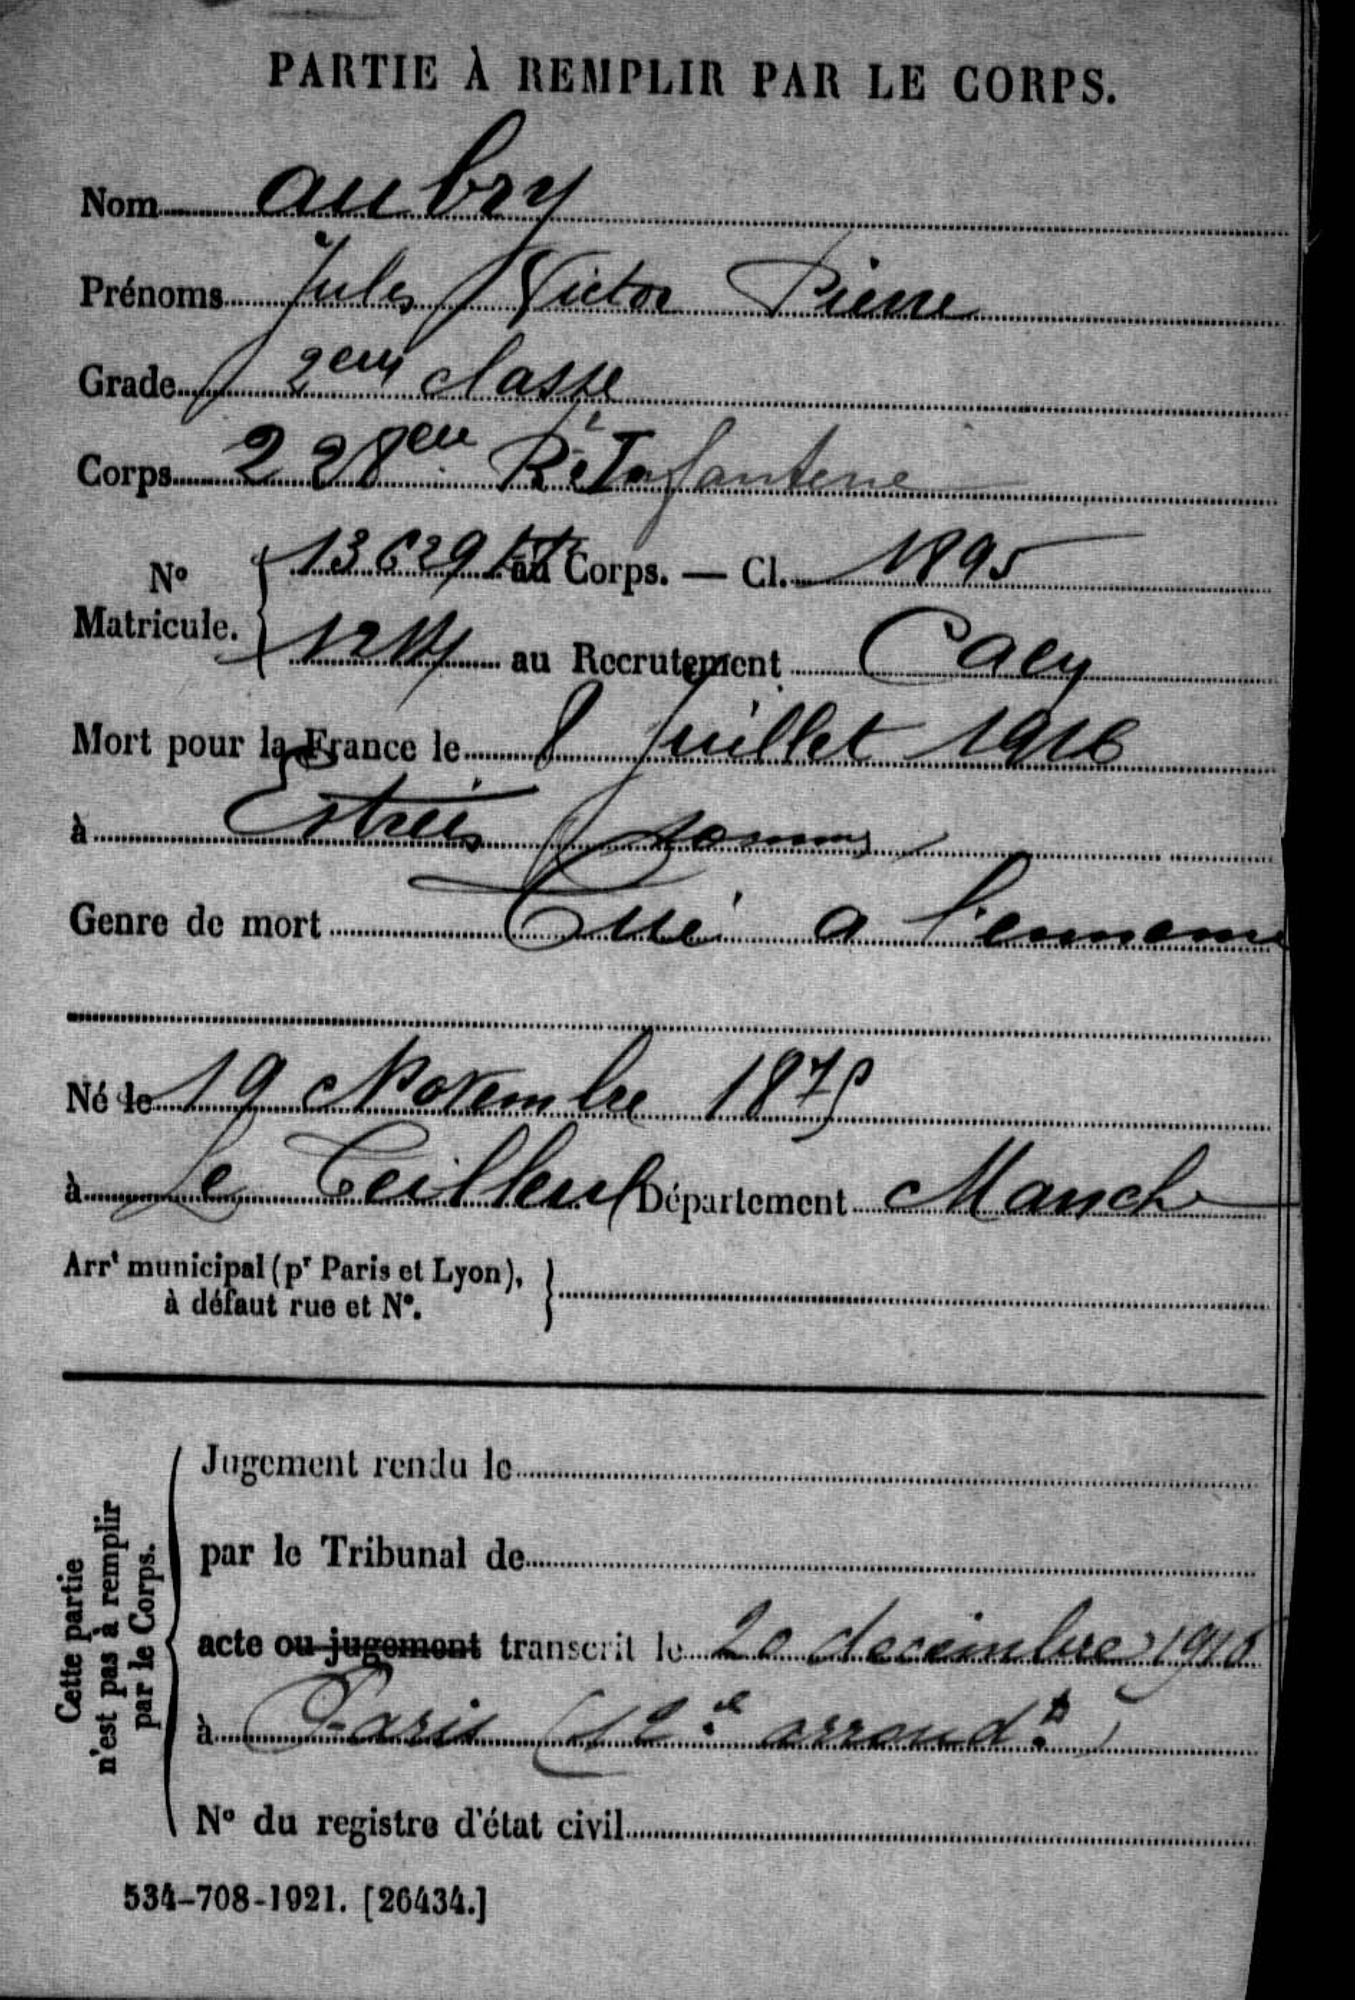 PARTIE À REMPLIR PAR LE CORPS.
Nom aubry
Prénoms Jules Victor Pierre
Grade 2em classe
Corps 228eme Rt Infanterie
No Matricule. { 13629 au Corps. — Cl. 1895
au Recrutement Caen
Mort pour la France le 8 Juillet 1916
à Estrées Somme
Genre de mort Tué a l'ennemi
Né le 19 Novembre 1875
à Le Teilleul Département Manche
Arrt municipal (pr Paris et Lyon), à défaut rue et No. }
Cette partie n'est pas à remplir par le Corps.
Jugement rendu le
par le Tribunal de
acte ou jugement transcrit le 20 décembre 1916
à Paris (12e arrondt)
No du registre d'état civil
534-708-1921. [26434.]